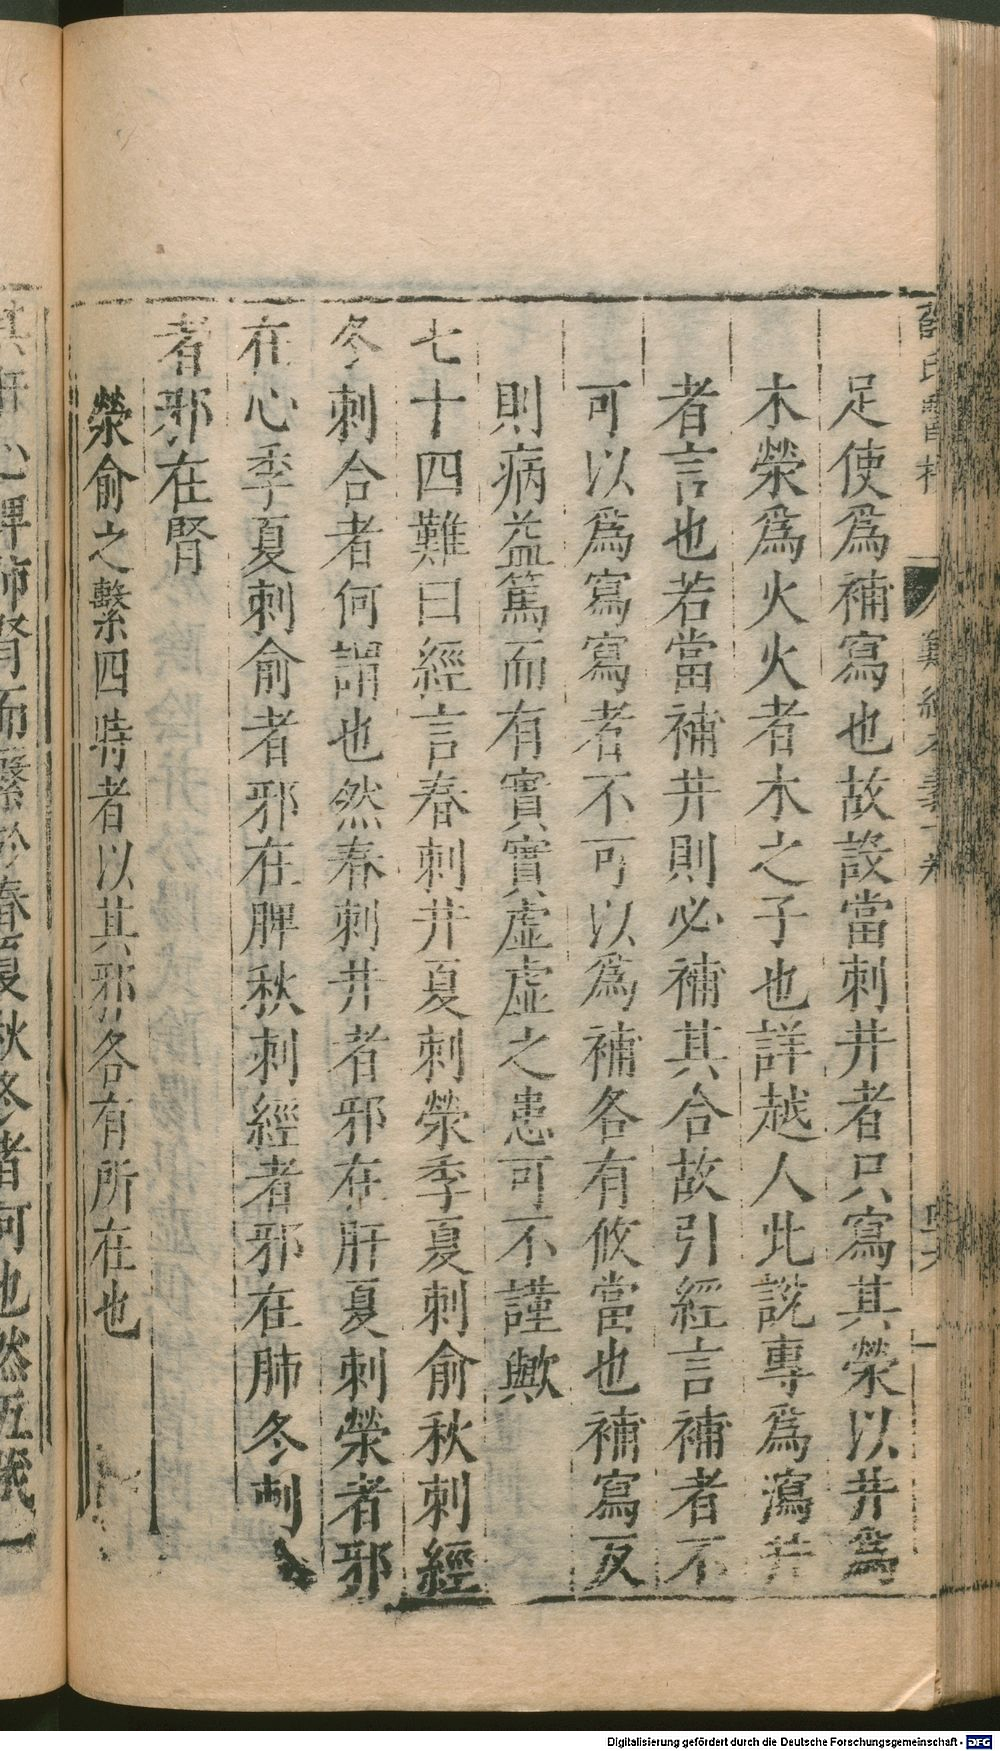 足使爲補寫也故設當刺井者只寫其滎以井爲
木滎爲火火者木之子也詳越人此說專爲瀉井
者言也若當補井則必補其合故引經言補者不
可以爲寫寫者不可以爲補各有攸當也補寫反
則病益篤而有實實虛虛之患可不謹歟
七十四難曰經言春刺井夏刺滎季夏刺俞秋刺經
冬刺合者何謂也然春刺井者邪在肝夏刺滎者邪
在心季夏刺俞者邪在脾秋刺經者邪在肺冬刺合
者邪在腎
滎俞之繫四時者以其邪各有所在也
心脾肺腎而繫於春夏秋冬者何也然五藏一
Digitalisierung gefördert durch die Deutsche Forschungsgemeinschaft - DFG